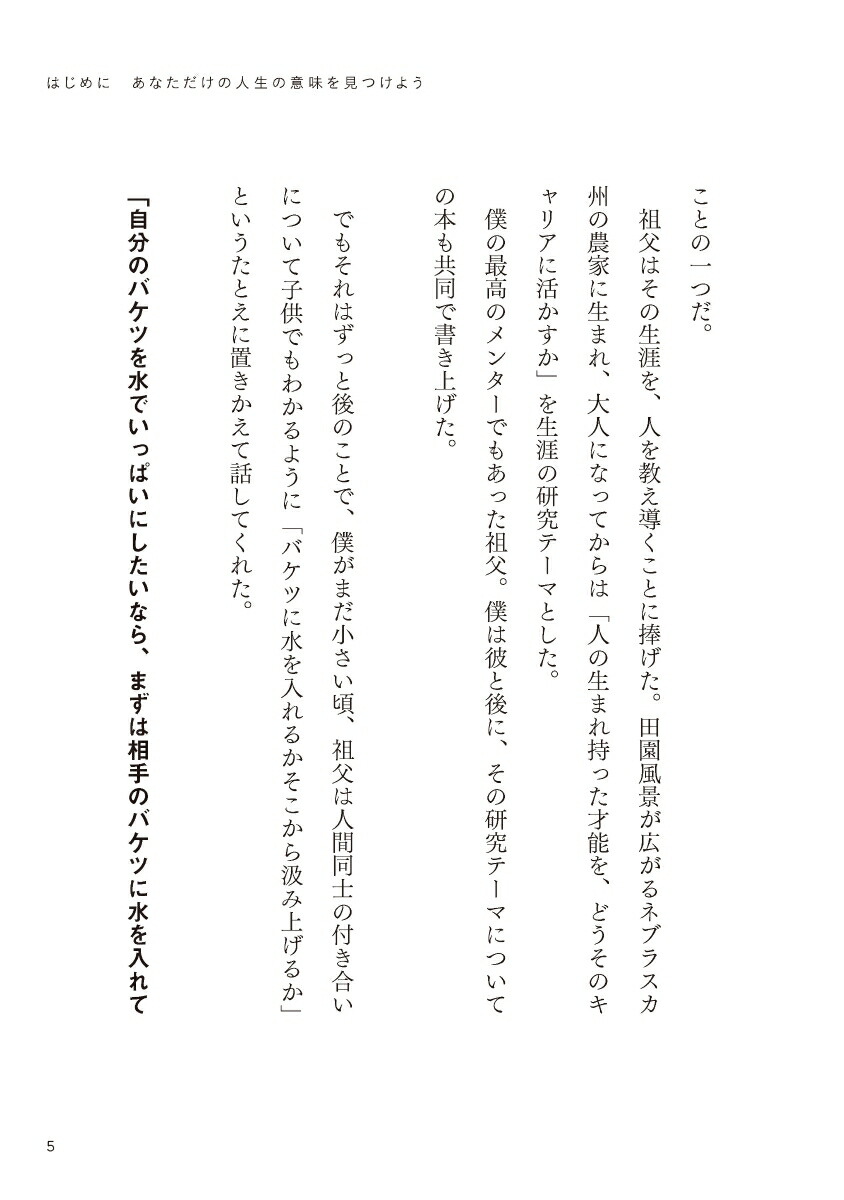 はじめに　あなただけの人生の意味を見つけよう
ことの一つだ。
　祖父はその生涯を、人を教え導くことに捧げた。田園風景が広がるネブラスカ
州の農家に生まれ、大人になってからは「人の生まれ持った才能を、どうそのキ
ャリアに活かすか」を生涯の研究テーマとした。
　僕の最高のメンターでもあった祖父。僕は彼と後に、その研究テーマについて
の本も共同で書き上げた。
　でもそれはずっと後のことで、僕がまだ小さい頃、祖父は人間同士の付き合い
について子供でもわかるように「バケツに水を入れるかそこから汲み上げるか」
というたとえに置きかえて話してくれた。
「自分のバケツを水でいっぱいにしたいなら、まずは相手のバケツに水を入れて
5